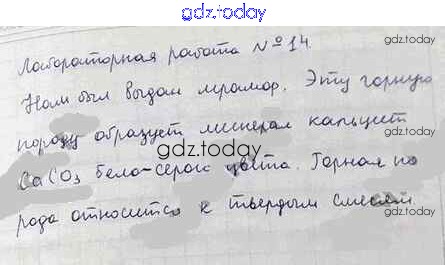 gdz.today
gdz.today
Лабораторная работа №14
Нам был выдан мрамор. Эту горную
породу образует минерал кальцит
gdz.today
CaCO3 бело-серого цвета. Горная по
рода относится к твердым смесям
gdz.today
gdz.today